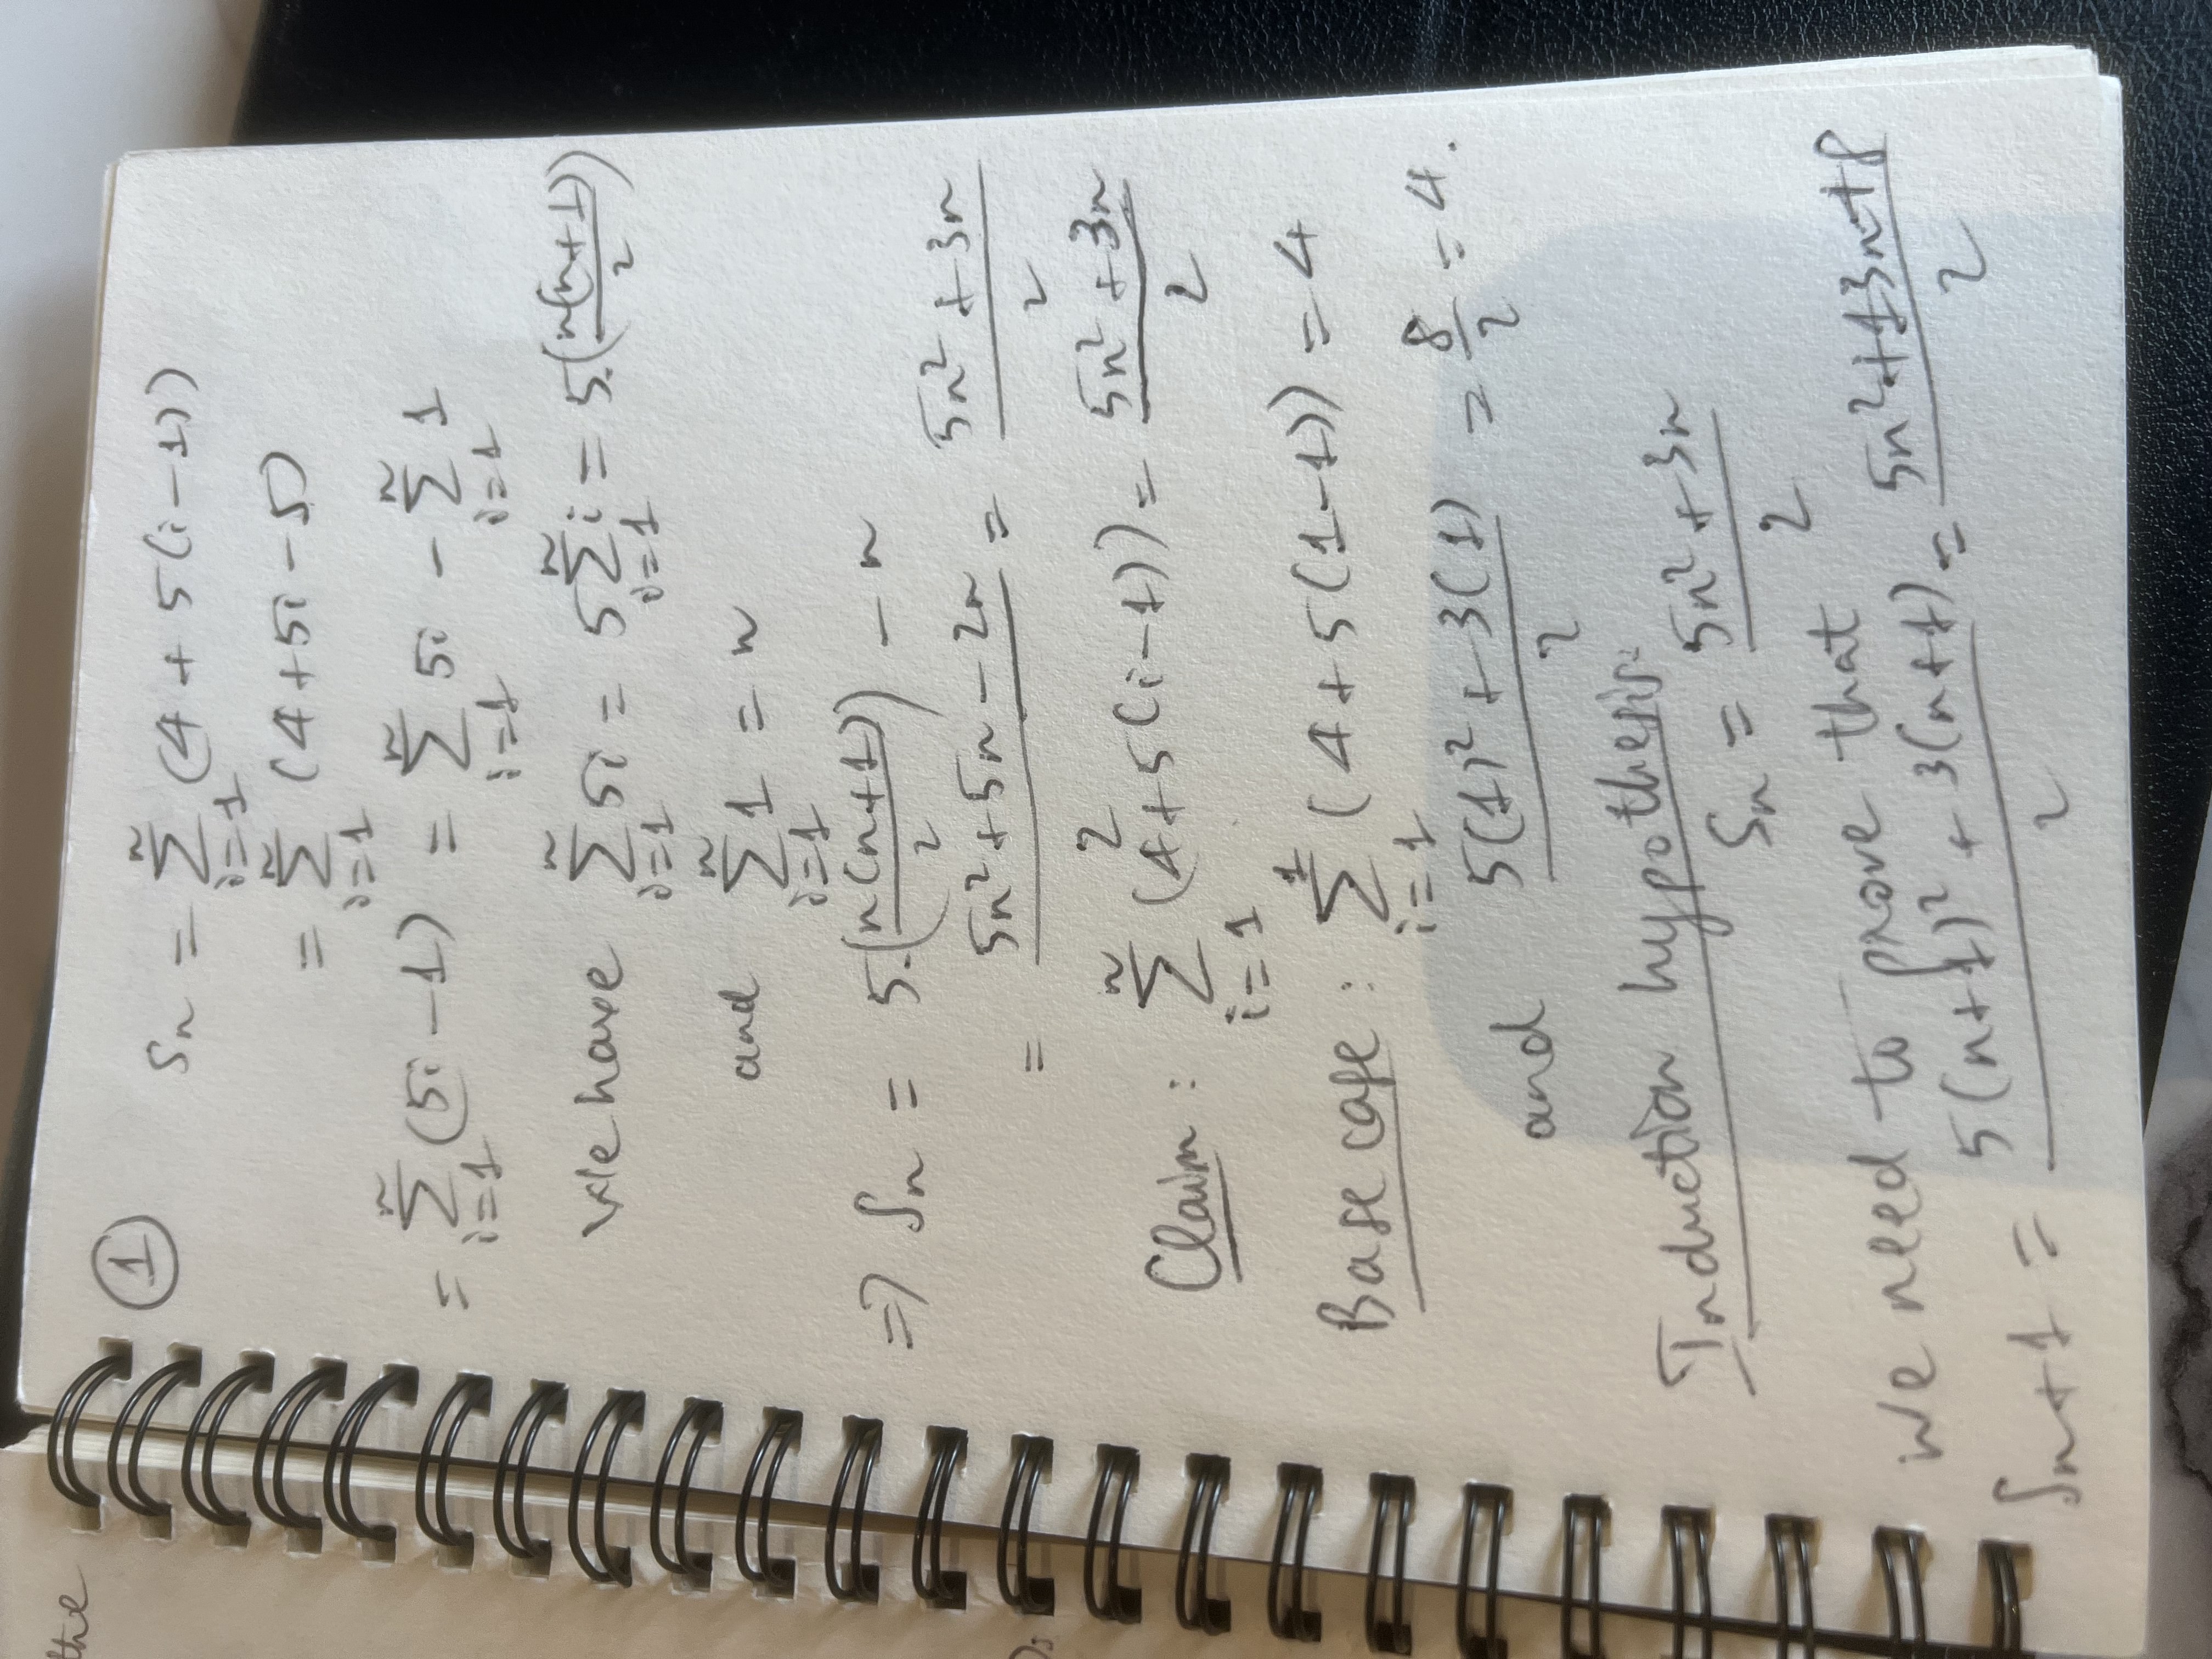 the
① Sₙ = ∑ᵢ₌₁ⁿ (4 + 5(i-1))
= ∑ᵢ₌₁ⁿ (4+5i-5)
= ∑ᵢ₌₁ⁿ (5i-1) = ∑ᵢ₌₁ⁿ 5i - ∑ᵢ₌₁ⁿ 1
We have ∑ᵢ₌₁ⁿ 5i = 5∑ᵢ₌₁ⁿ i = 5.(n(n+1)/2)
and ∑ᵢ₌₁ⁿ 1 = n
=> Sₙ = 5.(n(n+1)/2) - n
= (5n²+5n-2n)/2 = (5n²+3n)/2
Claim: ∑ᵢ₌₁ⁿ (4+5(i-1)) = (5n²+3n)/2
Base case: ∑ᵢ₌₁¹ (4+5(1-1)) = 4
and (5(1)²+3(1))/2 = 8/2 = 4.
Induction hypothesis:
Sₙ = (5n²+3n)/2
We need to prove that
Sₙ₊₁ = (5(n+1)²+3(n+1))/2 = (5n²+13n+8)/2